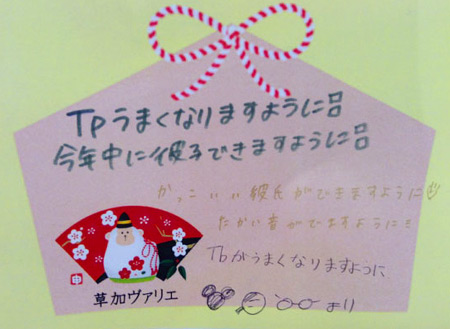 Tpうまくなりますように
今年中に彼氏できますように
かっこいい彼氏ができますように
たかい音がでますように
Tbがうまくなりますように
まり
申
草加ヴァリエ